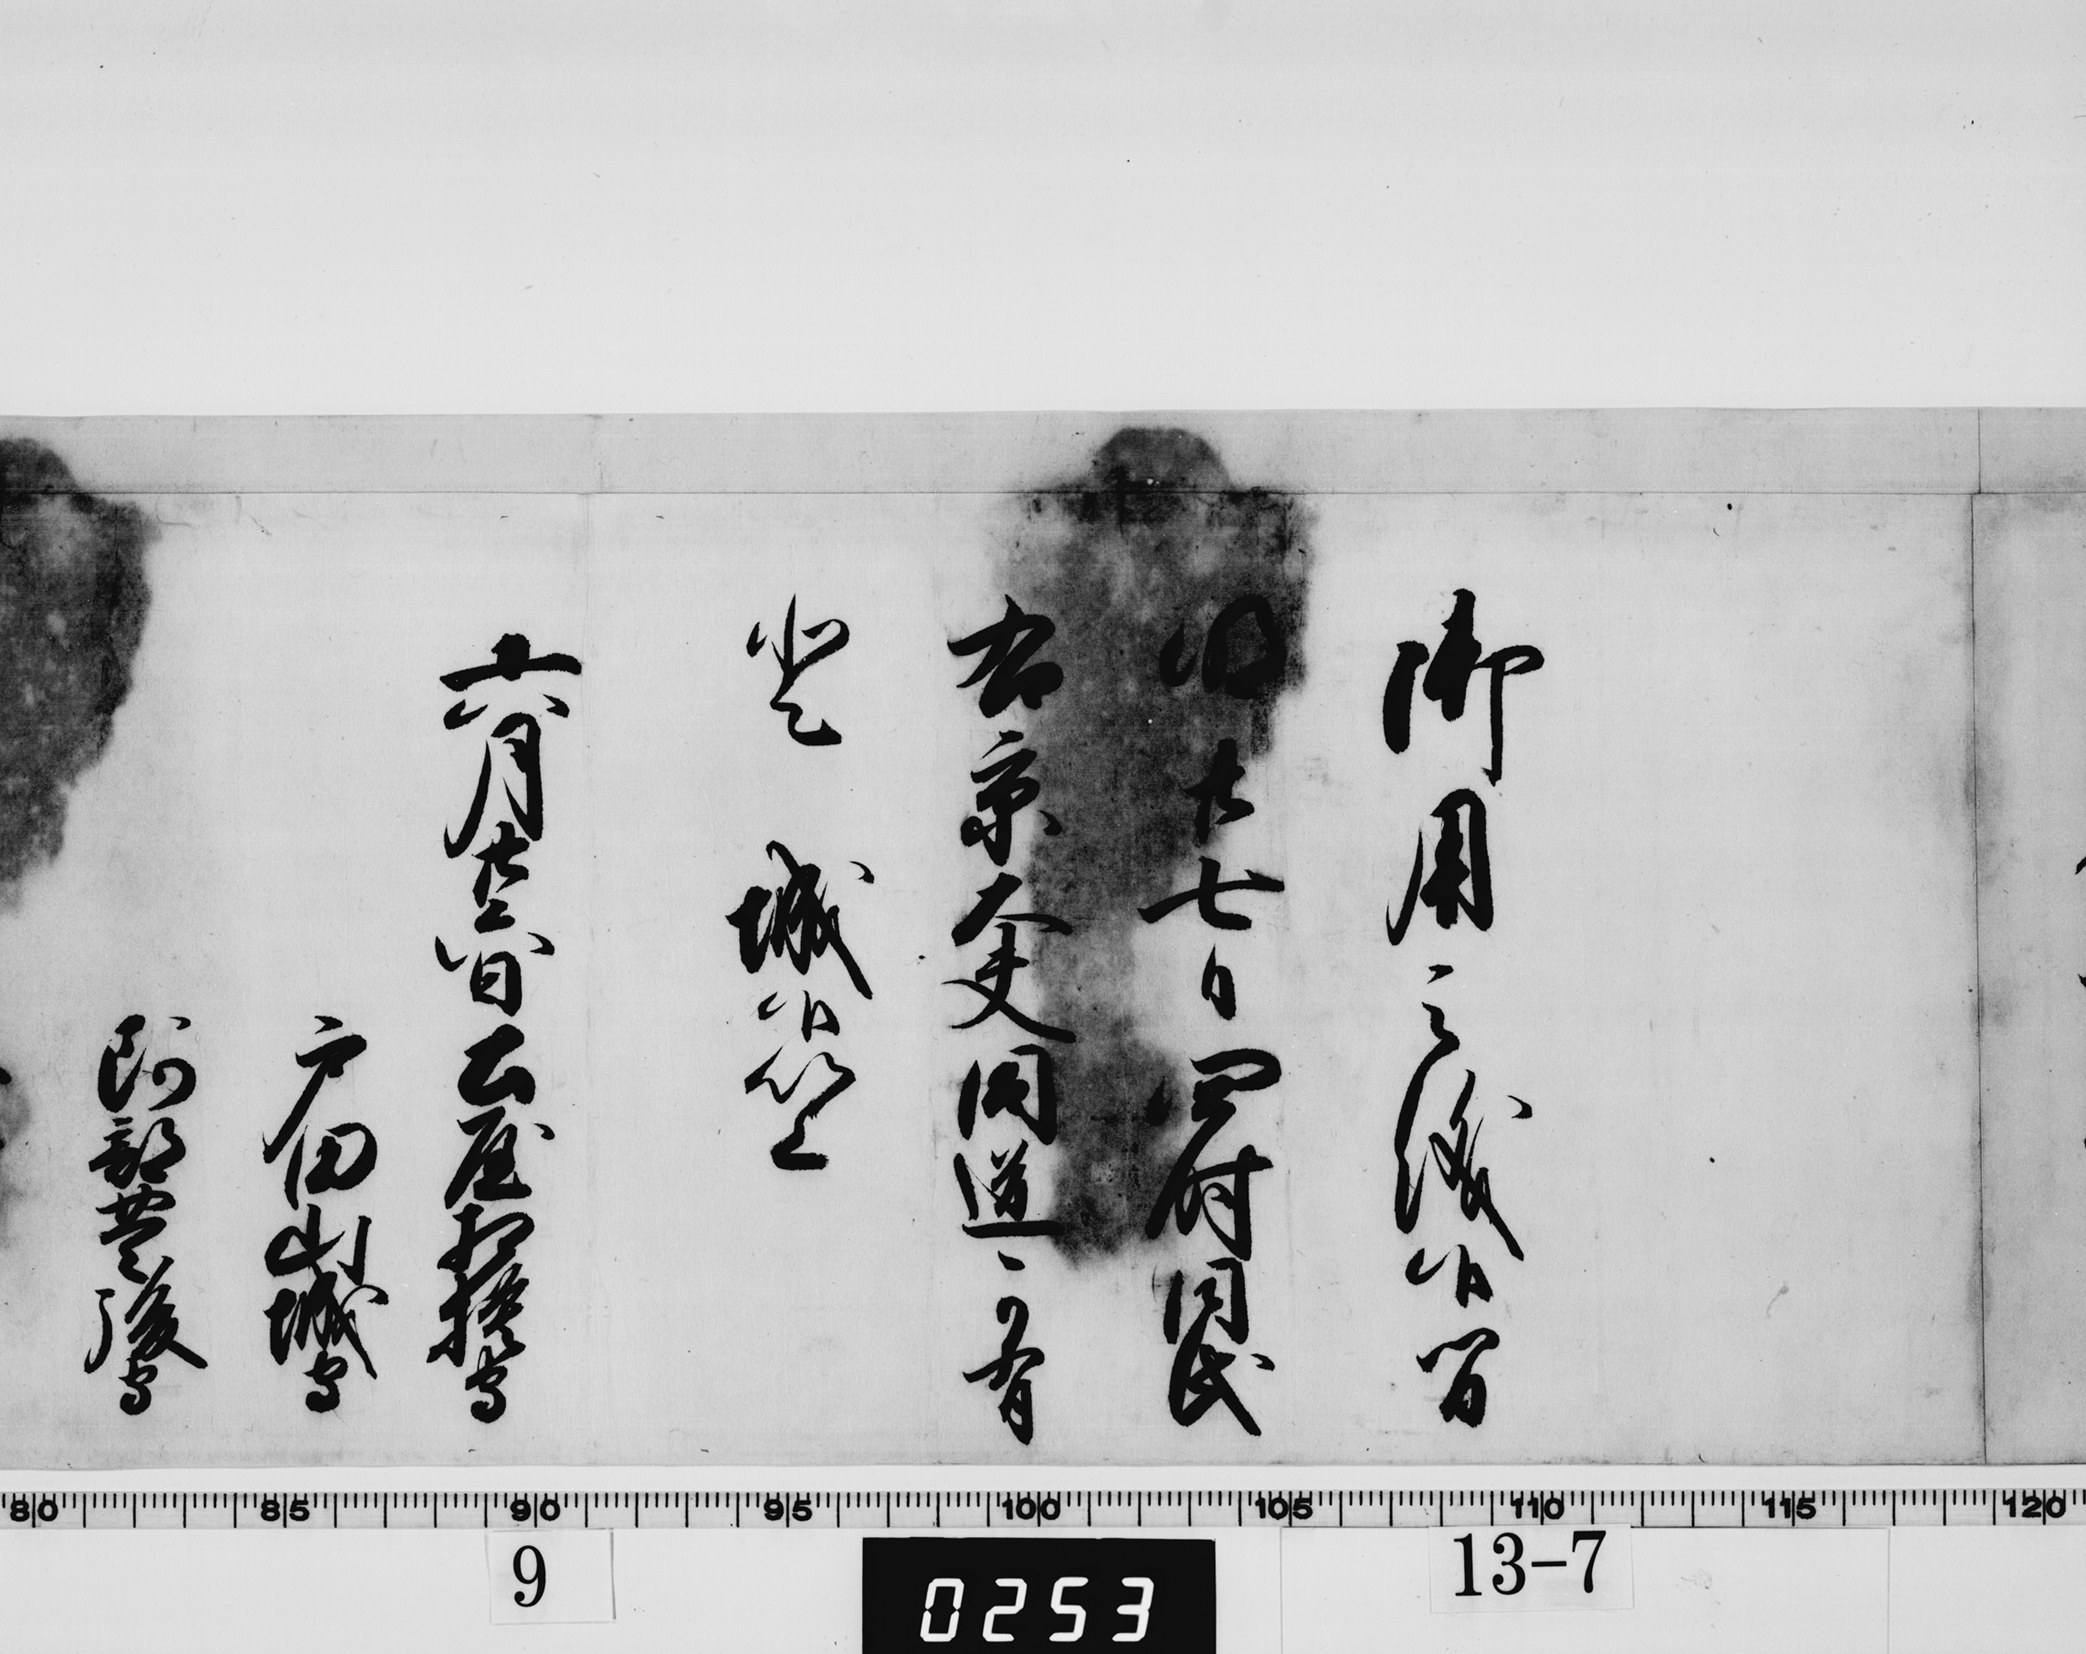 御用之儀候間
明廿七日四時同氏
右京大夫同道可有
登 城候以上
六月廿六日 土屋相模守
戸田山城守
阿部豊後守
80 85 90 95 100 105 110 115 120
9
0253
13-7